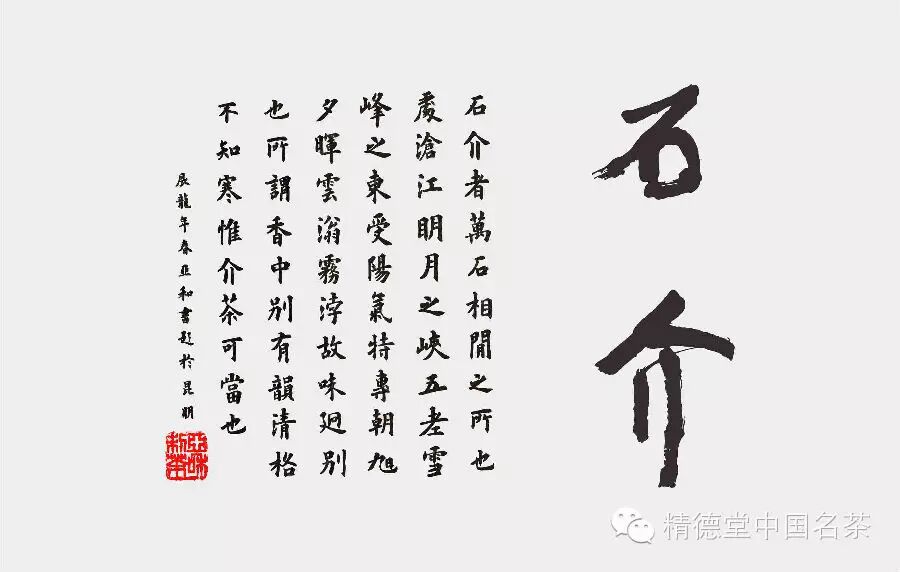 石介
石介者萬石相間之所也
處滄江明月之峽五老雪
峰之東受陽氣特專朝旭
夕暉雲滃霧浡故味迥別
也所謂香中別有韻清格
不知寒惟介茶可當也
辰龍年春亞和書題於昆明
精德堂中国名茶